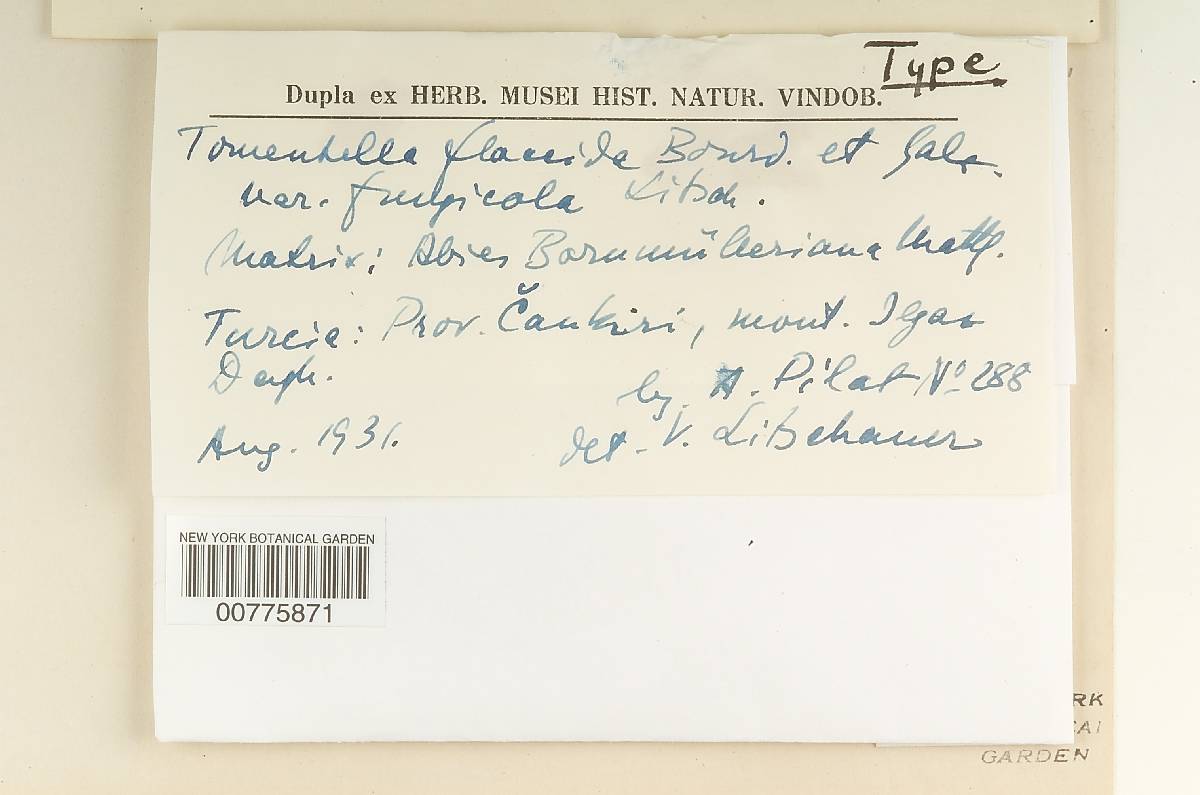 Type
Dupla ex HERB. MUSEI HIST. NATUR. VINDOB.
Tomentella flaccida Bourd. et Galz.
var. fungicola Litsch.
Matrix: Abies Bornmülleriana Mattf.
Turcia: Prov. Čankiri, mont. Ilgaz
Dagh.
lg. A. Pilat No 288
Aug. 1931.
det. V. Litschauer
NEW YORK BOTANICAL GARDEN
00775871
RK
GARDEN